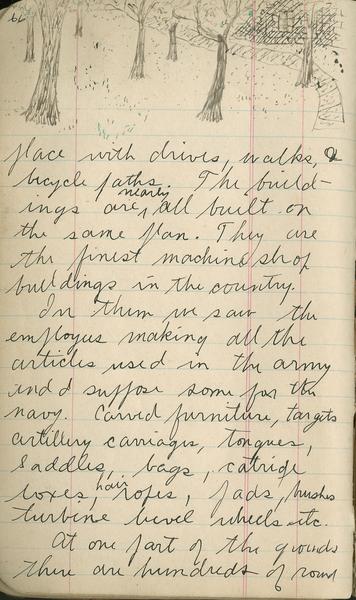 62
place with drives, walks, &
bicycle paths. The build-
ings are, nearly all built on
the same plan. They are
the finest machine shop
buildings in the country.
In them we saw the
employes making all the
articles used in the army
and I suppose some for the
navy. Carved furniture, targets
artillery carriages, tongues,
Saddles, bags, catrige
boxes, hair ropes, pads, brushes
turbine bevel wheels etc.
At one part of the grounds
there are hundreds of